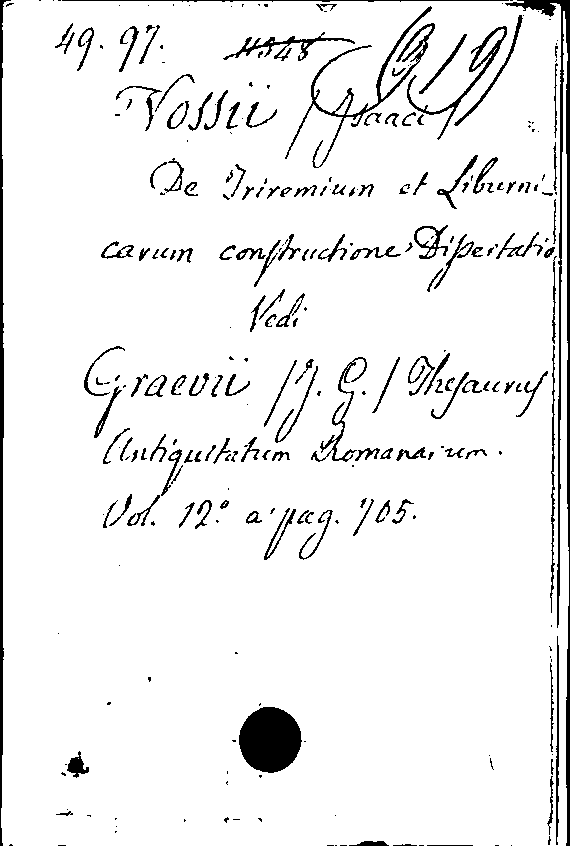 49. 97. 11348 (B/9)
Vossii /Isaaci/
De Triremium et Liburni-
carum constructione Dissertatio
Vedi
Graevii /J. G./ Thesaurus
Antiquitatum Romanarum.
Vol. 12º a pag. 705.